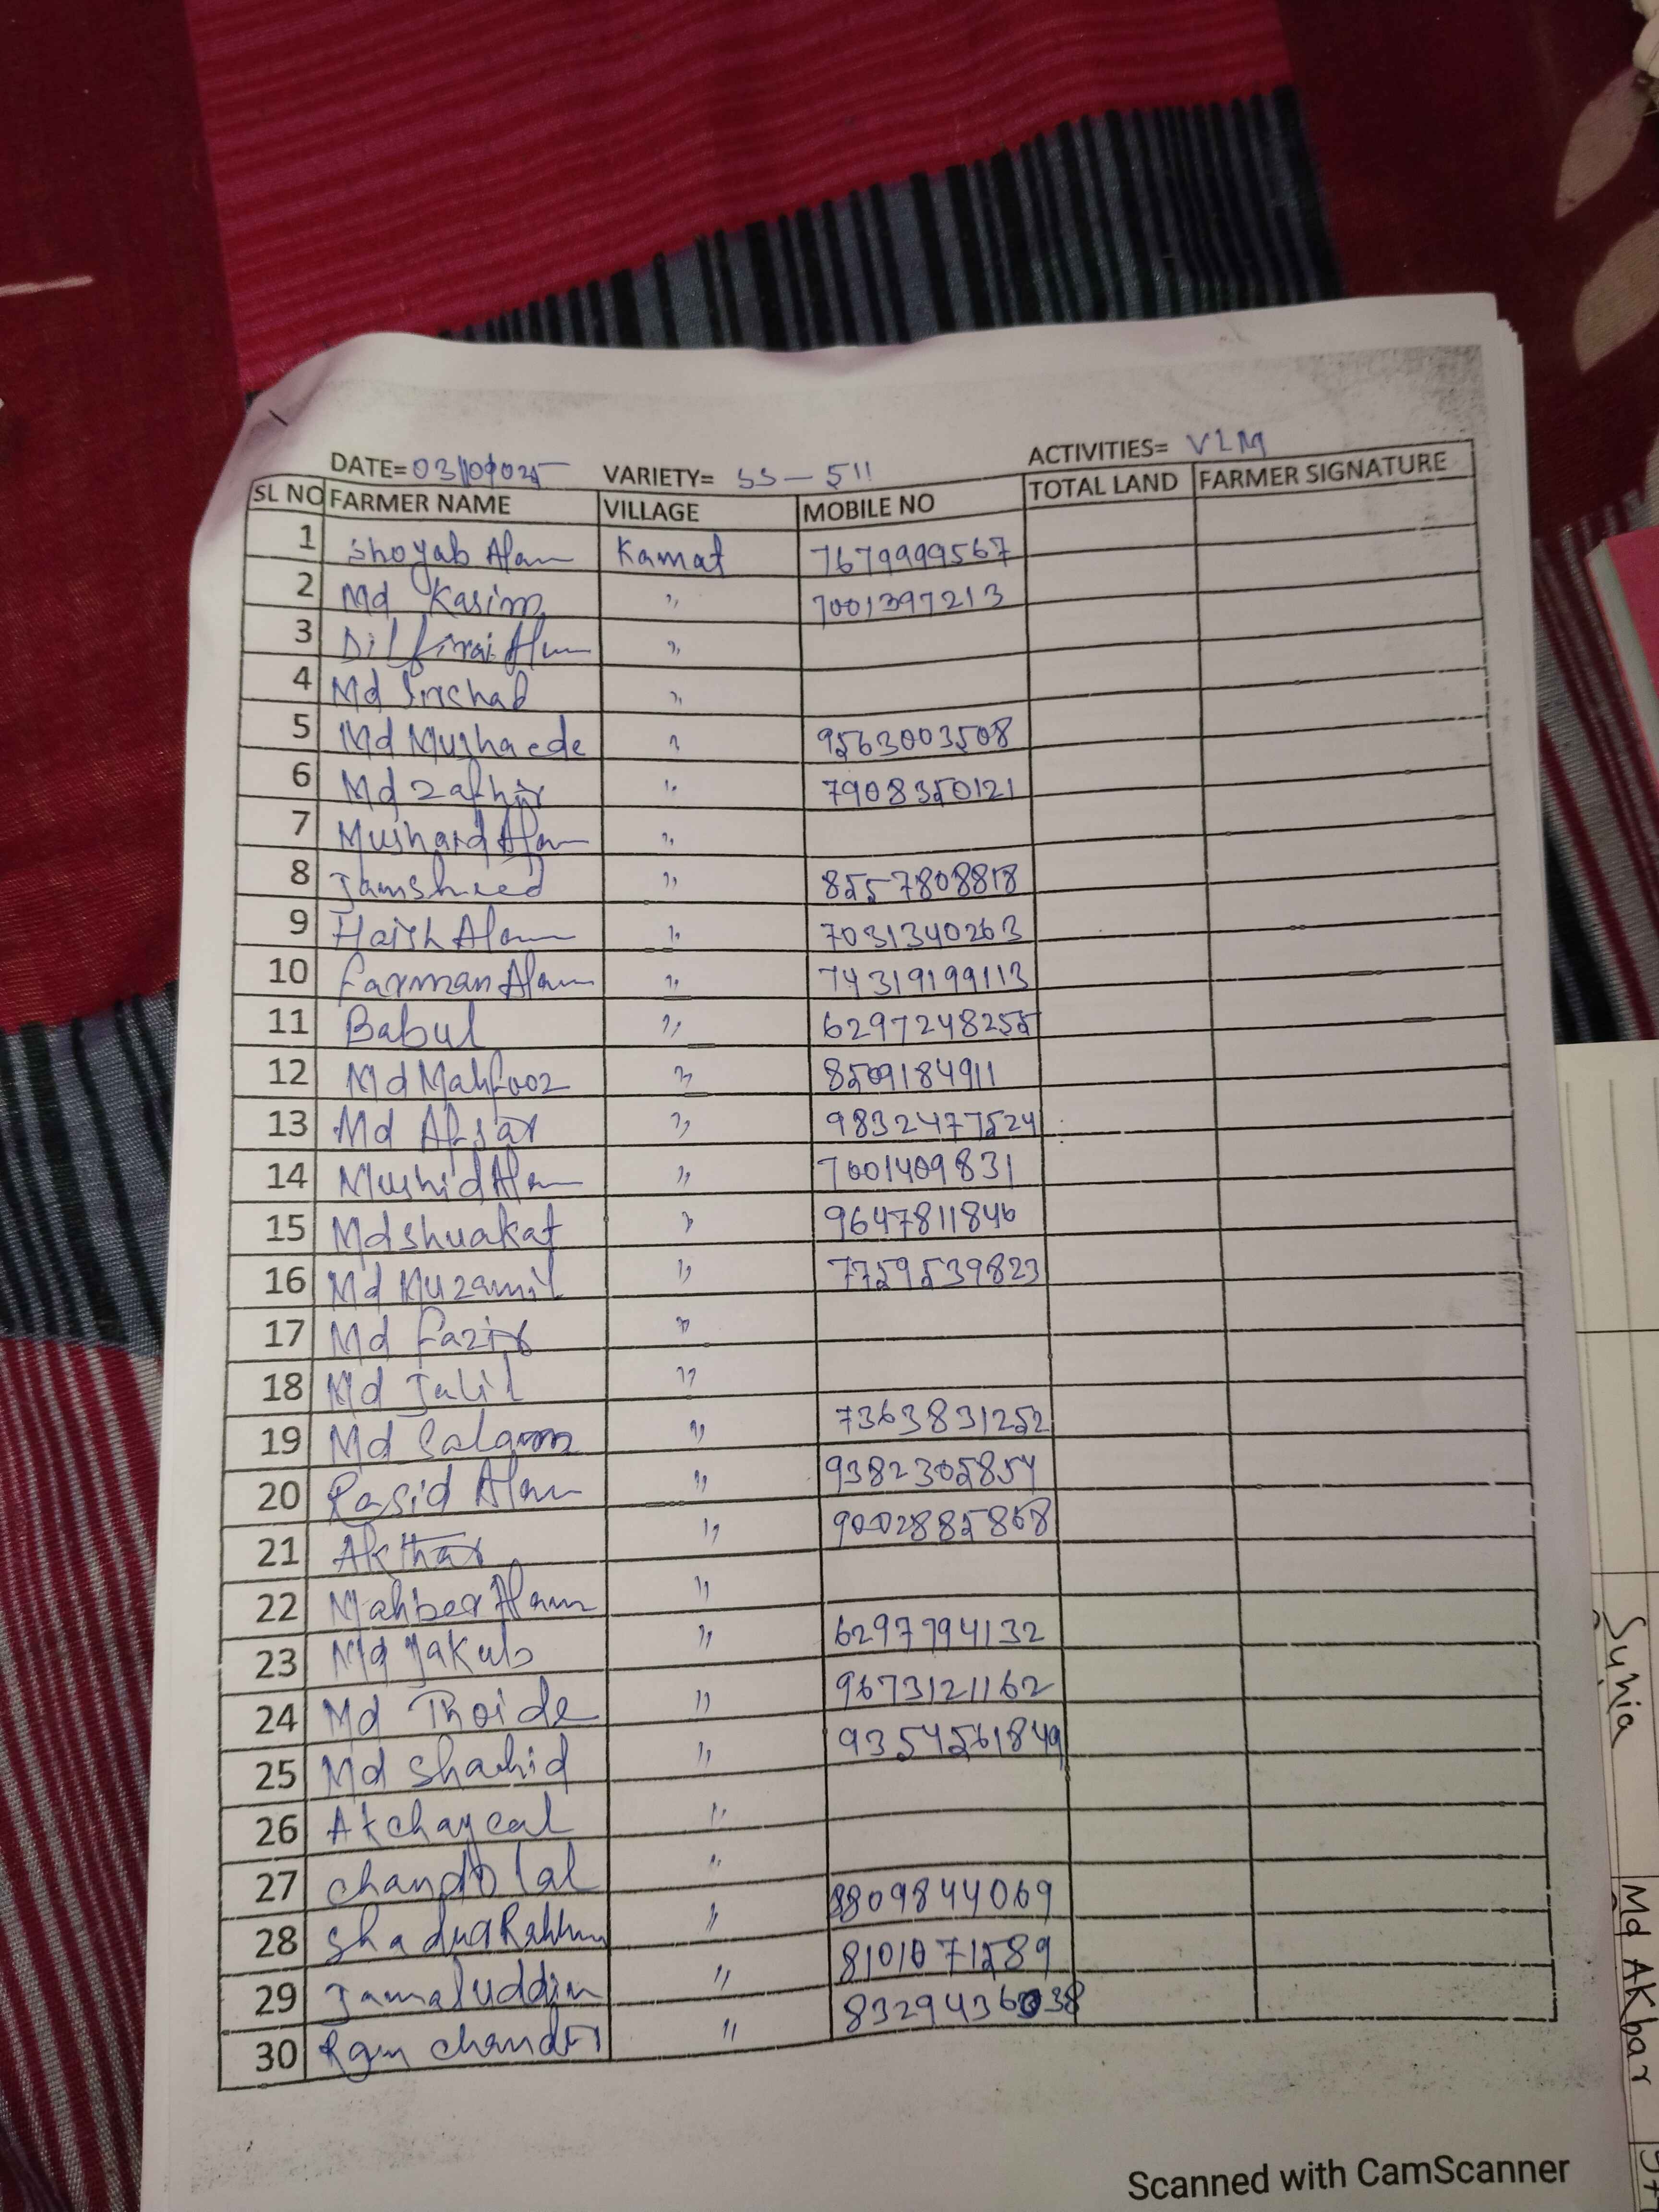 DATE= 03/09/025 VARIETY= SS - 511 ACTIVITIES= VLM
SL NO FARMER NAME VILLAGE MOBILE NO TOTAL LAND FARMER SIGNATURE
1 Shoyab Alam Kamat 7679999567
2 Md Kasim " 7001397213
3 Dilfiroj Alam "
4 Md "
5 Md Mushaede " 9563003508
6 Md Zafhir " 7908350121
7 Mushard Alam "
8 Jamsheed " 8557808818
9 Harish Alam " 7031340263
10 Farman Alam " 74319199113
11 Babul " 6297248255
12 Md Mahfooz " 8509184911
13 Md Afsar " 9832477524
14 Murshid Alam " 7001409831
15 Md Shuakat " 9647811846
16 Md Muzamil " 7759539823
17 Md Fazir "
18 Md Jalil "
19 Md Salam " 7363831252
20 Rasid Alam " 9382305854
21 Akthar " 9002885868
22 Mahber Alam "
23 Md Jakub " 6297794132
24 Md Thoide " 9673121162
25 Md Shahid " 9354561849
26 Akchaycal "
27 Chando lal " 8809844069
28 Shadud Rahman " 8101071589
29 Jamaluddin " 8329436038
30 Ram Chandr "
Scanned with CamScanner
Sunia
Md Akbar